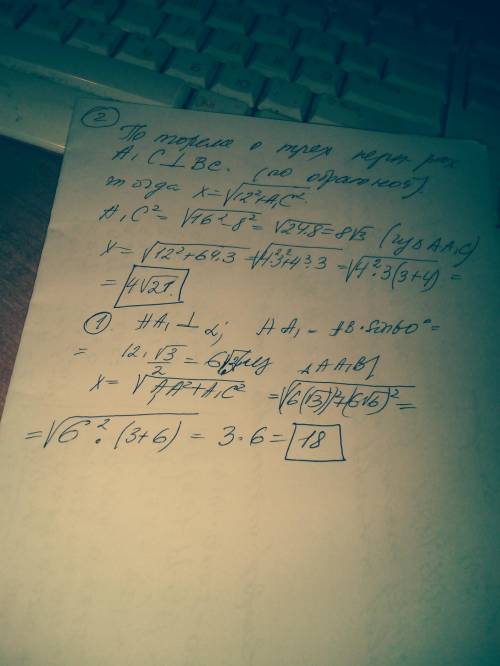 ②
По теореме о трех перп-рах
A₁C⊥BC. (по обратной).
тогда x=√(12²+A₁C²)
A₁C²=√(16²-8²)=√(24·8)=8√3 (из ΔAA₁C)
x=√(12²+64·3)=√(4²·3²+4³·3)=√(4²·3(3+4))=
=4√21.
① AA₁⊥α; AA₁=AB·sin60°=
=12·√3/2=6√3 из ΔAA₁B
x=√(AA²+A₁C²)=√(6(√3)²+(6√6)²)=
=√(6²·(3+6))=3·6=18